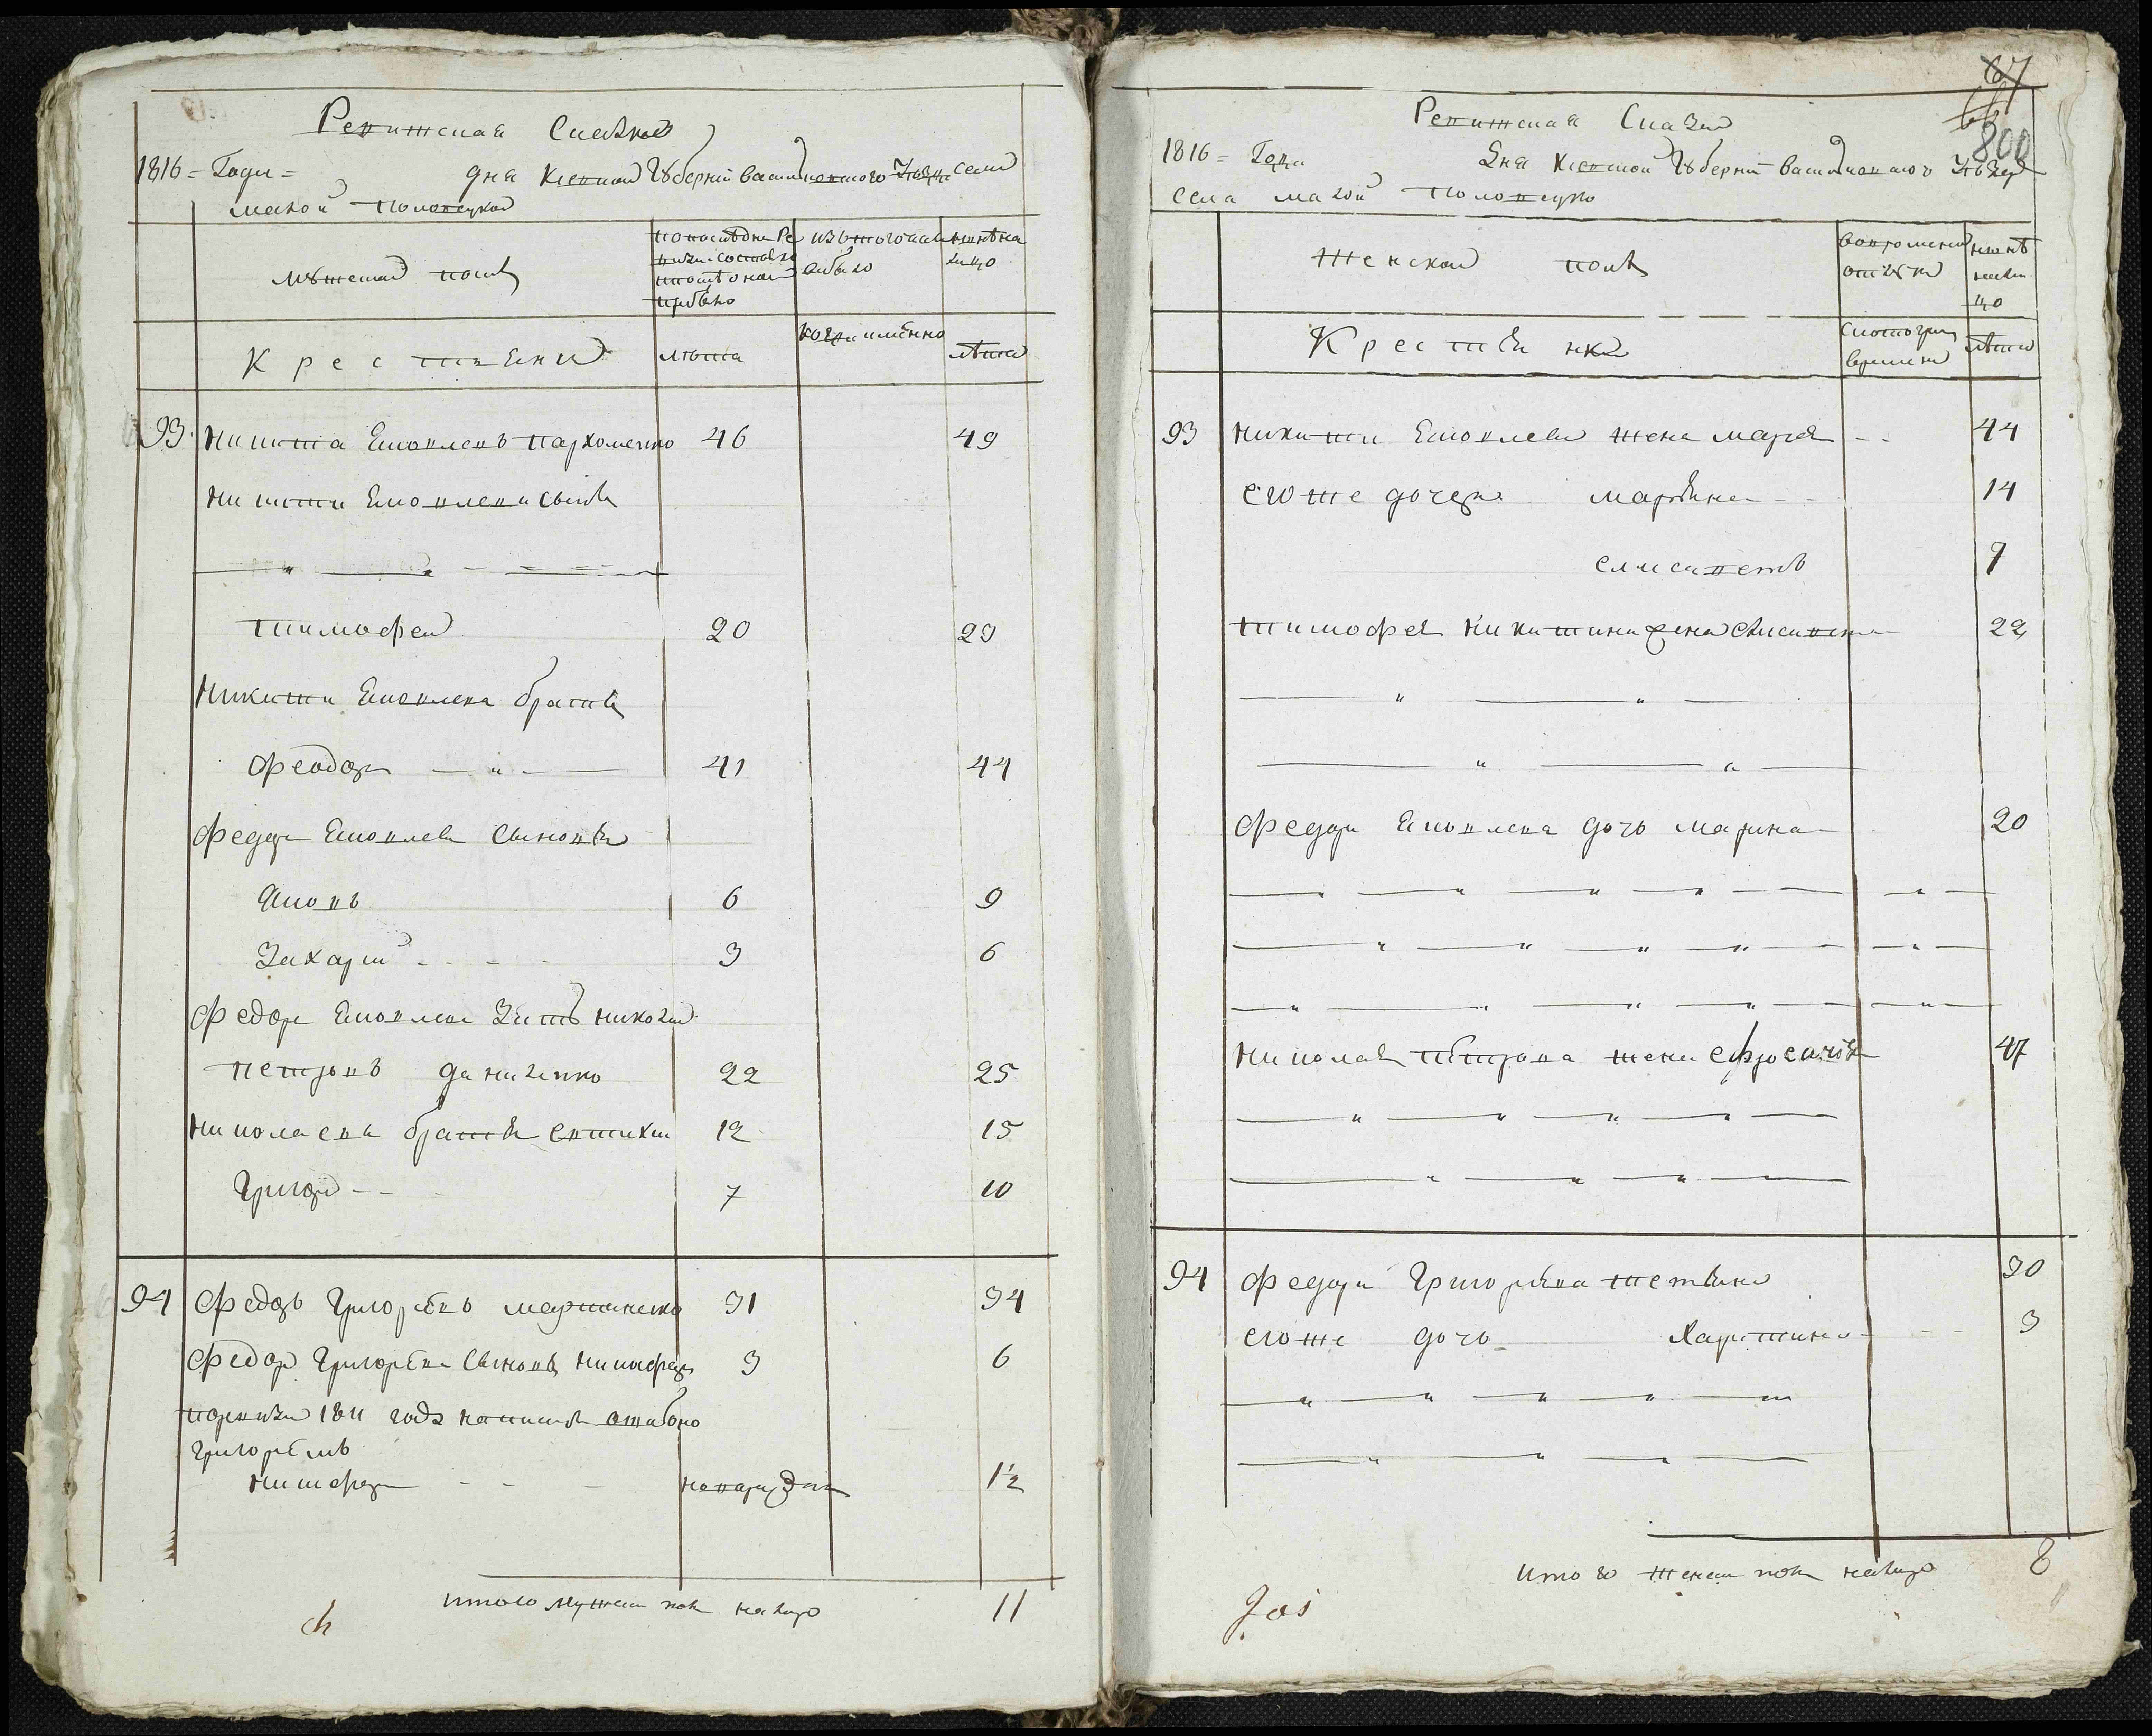 Ревижская Сказка
1816 = Года = дня Киевской Губернии Васильковского Уезда села
малой Половецкой
мужеска полъ
по последней ревизии состояло и после оной прибыло
изтого числа выбыло
ныне на лицо
Крестьяни
лета
когда именно
лета
93 Никита Яковлевъ Пархоменко 46 49
Никити Яковлева сынъ
Тимофей 20 23
Никити Яковлева братъ
Феодоръ 41 44
Федора Яковлева сыновья
Яковъ 6 9
Захарий 3 6
Федора Яковлева зять Николай
Петровъ Даниленко 22 25
Николаева братья Евтихий 12 15
Григорий 7 10
94 Федоръ Григорьевъ Мартиненко 31 34
Федора Григорьева сыновья Никифоръ 3 6
по ревизии 1811 года написанъ ошибкою
Григориемъ
Никифоръ новорожден 1½
итого мужеска пола налицо 11
67
66
800
Ревижская Сказка
1816 = Года дня Киевской Губернии Васильковского Уезда
села малой Половецкой
Женской полъ
во временной отлучке
ныне налицо
Крестьянки
с которого времени
лета
93 Никити Яковлева жена Мария 44
его же дочери Марьяна 14
Елисаветъ 9
Тимофея Никитина жена Елисавета 22
Федора Яковлева дочь Марина 20
Николая Петрова жена Ефросиния 47
94 Федора Григорьева жена Татьяна 30
его же дочь Харитина 3
итого женска пола налицо 8